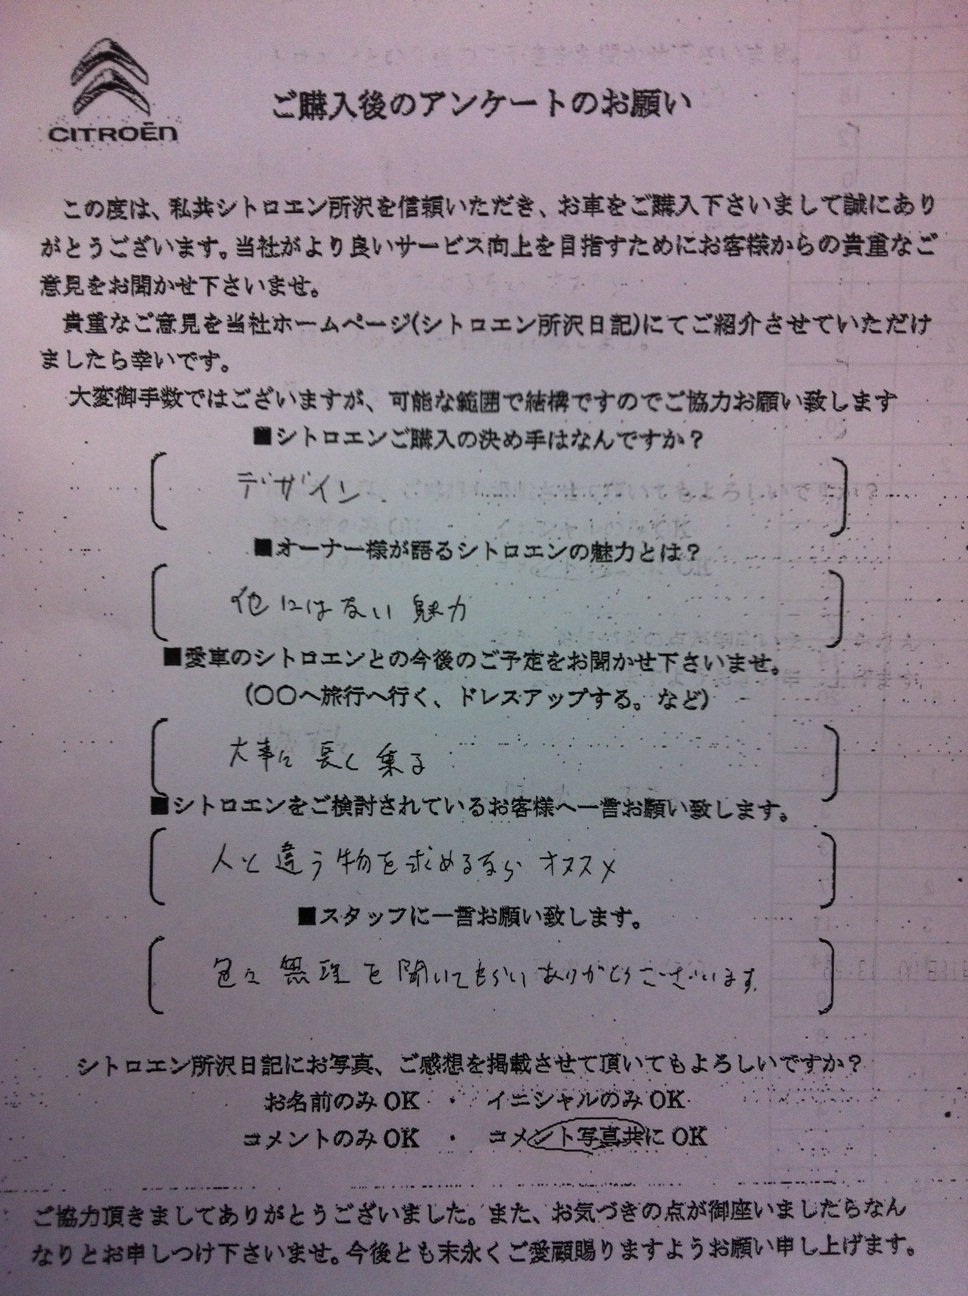 CITROËN
ご購入後のアンケートのお願い
この度は、私共シトロエン所沢を信頼いただき、お車をご購入下さいまして誠にあり
がとうございます。当社がより良いサービス向上を目指すためにお客様からの貴重なご
意見をお聞かせ下さいませ。
貴重なご意見を当社ホームページ(シトロエン所沢日記)にてご紹介させていただけ
ましたら幸いです。
大変御手数ではございますが、可能な範囲で結構ですのでご協力お願い致します
■シトロエンご購入の決め手はなんですか？
デザイン.
■オーナー様が語るシトロエンの魅力とは？
他にはない魅力
■愛車のシトロエンとの今後のご予定をお聞かせ下さいませ。
(〇〇へ旅行へ行く、ドレスアップする。など)
大事に長く乗る
■シトロエンをご検討されているお客様へ一言お願い致します。
人と違う物を求めるなら オススメ
■スタッフに一言お願い致します。
色々無理を聞いてもらいありがとうございます.
シトロエン所沢日記にお写真、ご感想を掲載させて頂いてもよろしいですか？
お名前のみOK ・ イニシャルのみOK
コメントのみOK ・ コメント写真共にOK
ご協力頂きましてありがとうございました。また、お気づきの点が御座いましたらなん
なりとお申しつけ下さいませ。今後とも末永くご愛顧賜りますようお願い申し上げます。